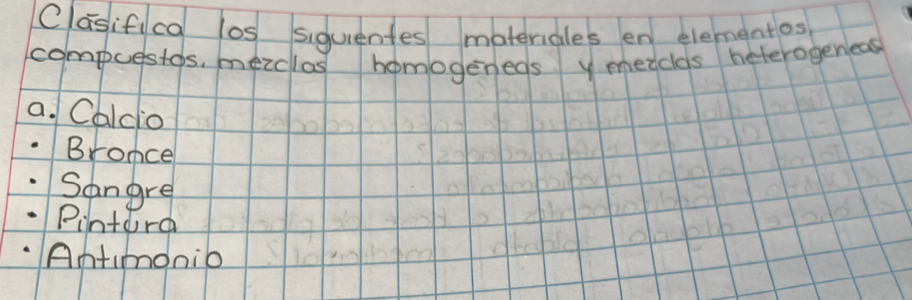 Clasifica los siguientes materiales en elementos,
compuestos, mezclas homogéneas y mezclas heterogeneas
a. Calcio
• Bronce
• Sangre
• Pintura
• Antimonio